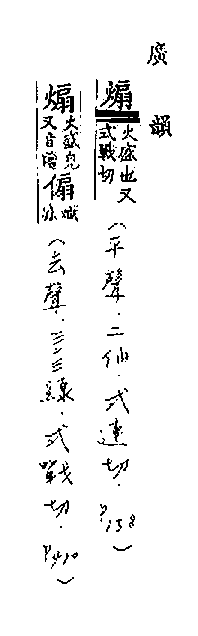 廣韻
煽火盛也又式戰切(平聲.二仙.式連切.P138)
煽火盛皃又音羶傓熾盛(去聲.三十三線.式戰切.P410)